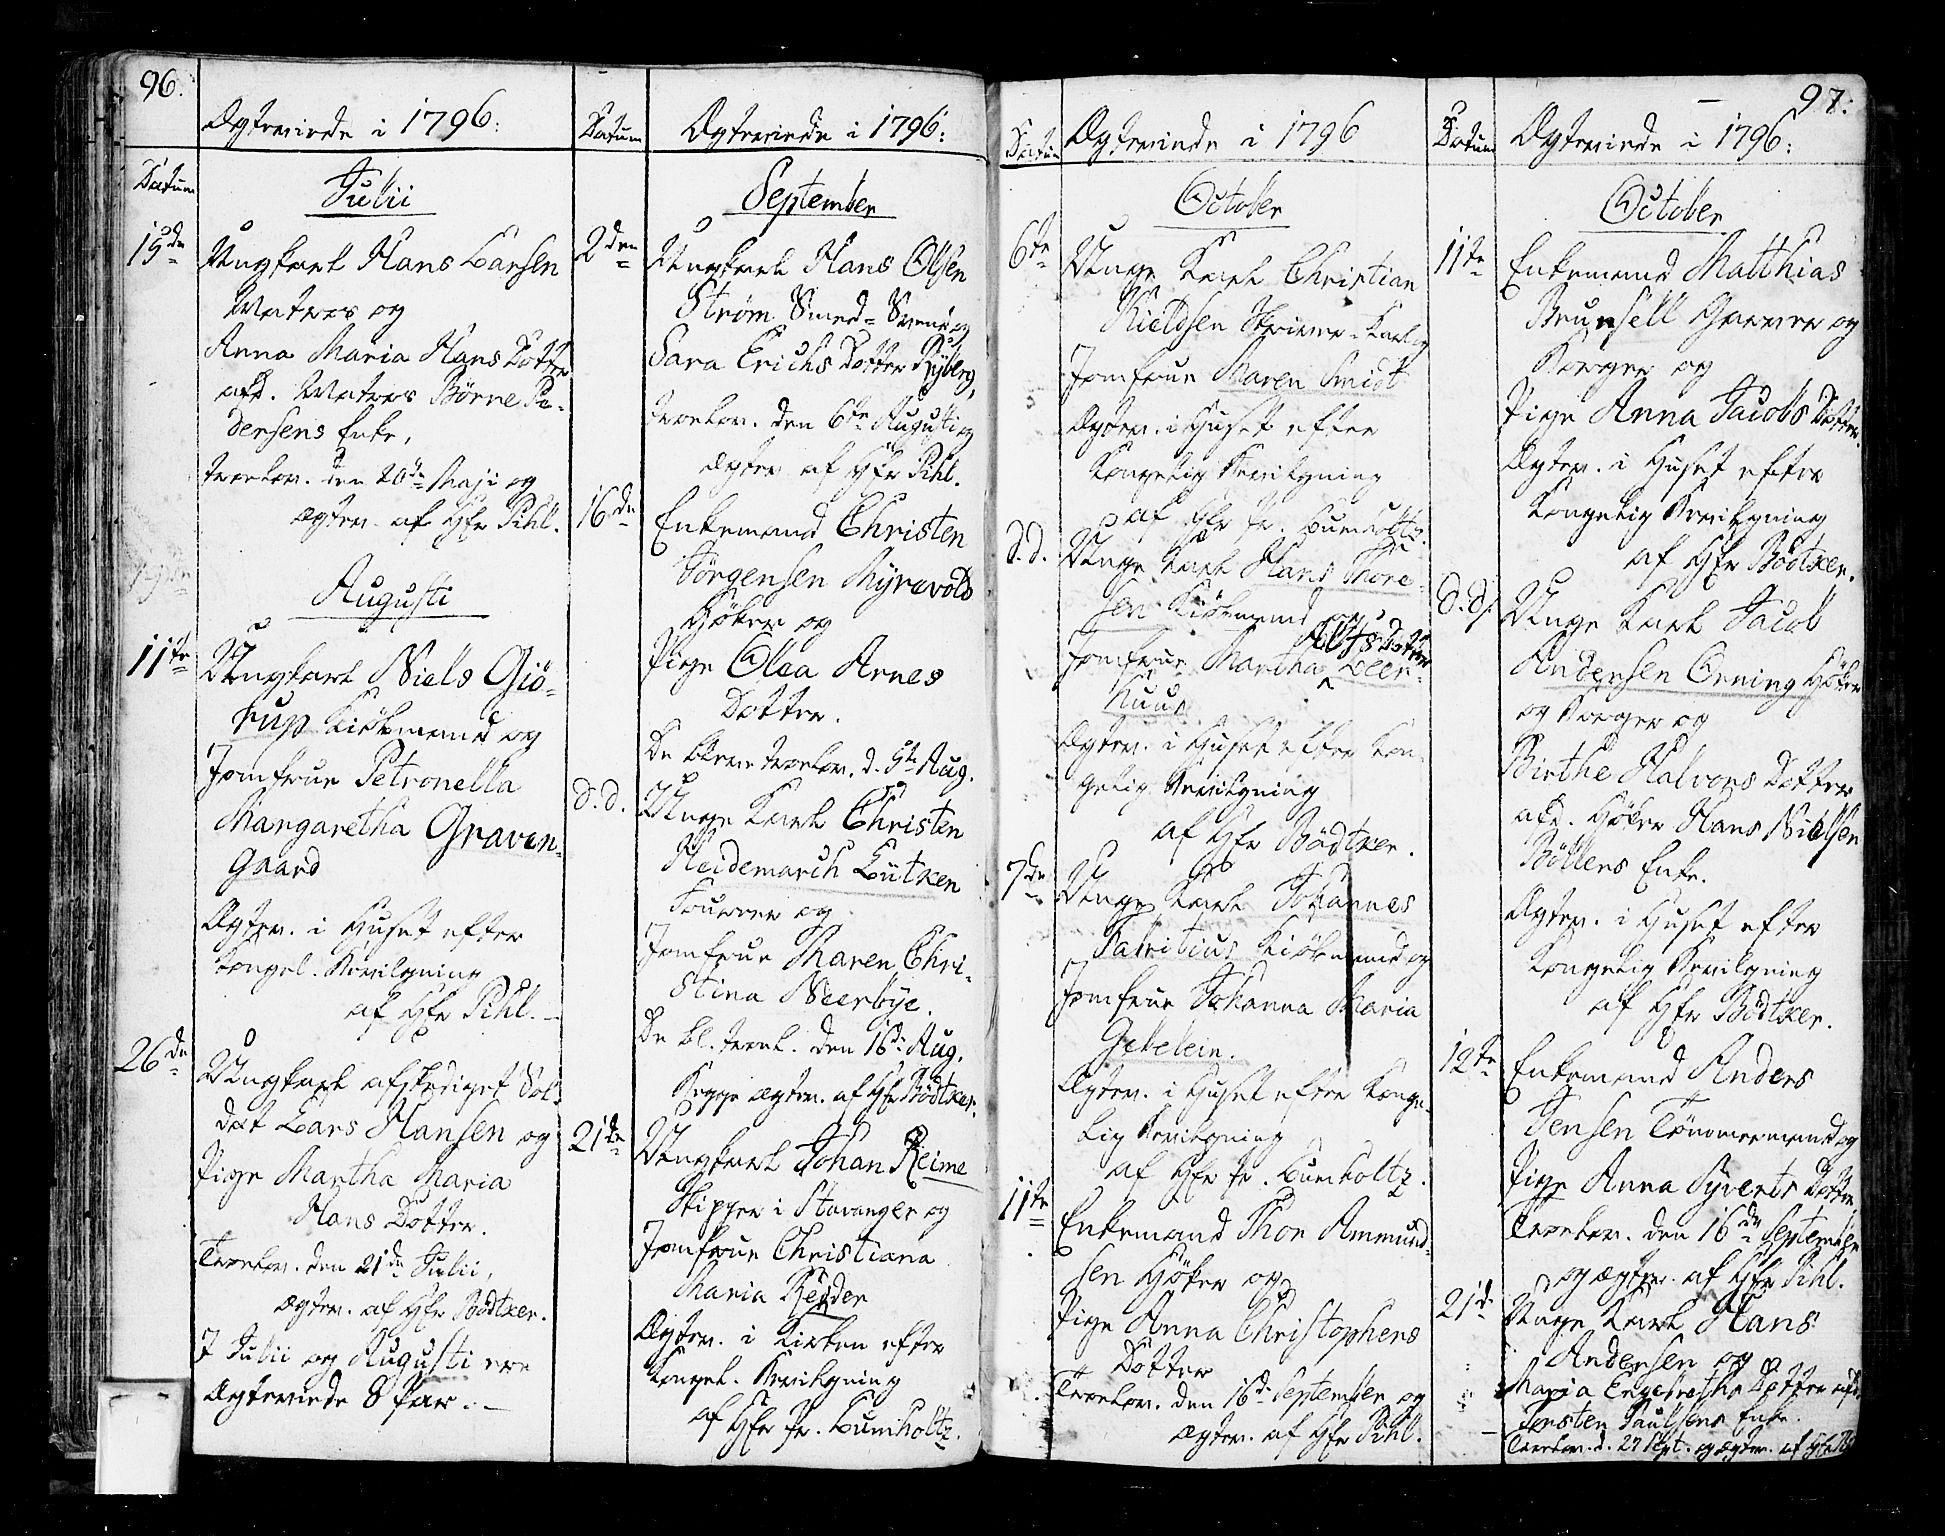 96.
Ægteviede i 1796:
Datum
Julii
15de
Ungkarl Hans Larsen
Matros og
Anna Maria Hans Dotter
afd. Matros Børne Pe-
dersens Enke,
trolov. den 20de Maji og
ægtev. af Hr Pihl.
Augusti
11te
Ungkarl Niels Giö-
rup Kiöbmand og
Jomfrue Petronella
Margaretha Graven-
gaard
Ægtev. i Huset efter
kongel. Bevilgning
af Hr Pihl.
26de
Ungkarl afskediget Sol-
dat Lars Hansen og
Pige Martha Maria
Hans Dotter.
Trolov. den 21de Julii,
ægtev. af Hr Bödtker.
I Julii og Augusti ere
Ægteviede 8 Par.
Datum
Ægteviede i 1796:
September
2den
Ungkarl Hans Olsen
Strøm Smed-Svend og
Sara Erichs Dotter Ryberg,
trolov. den 6te Augusti og
ægtev. af Hr Pihl.
16de
Enkemand Christen
Jörgensen Myrevold
Höker og
Pige Olea Arnes
Dotter.
De bleve trolov. d. 5te Aug.
d.d.
Unge Karl Christen
Heidemarch Lütken
Fourer og
Jomfrue Maren Chri-
stina Neerbye.
De bl. trol. den 16de Aug.
Begge ægtev. af Hr Bödtker.
21de
Ungkarl Johan Reime
Skipper i Stavanger og
Jomfrue Christiana
Maria Redder
Ægtev. i Kirken efter
Kongel. Bevilgning
af Hr Pr. Bumholtz.
Datum
Ægteviede i 1796
October
6te
Unge Karl Christian
Kieldsen Skriver-Karl og
Jomfrue Maren Smidt
Ægtev. i Huset efter
Kongelig Bevilgning
af Hr Pr. Bumholtz.
d.d.
Unge Karl Hans Thore-
sen Kiöbmand og
Alfs Dotter
Jomfrue Martha Leer-
Kuus
Ægtev. i Huset efter Kon-
gelig Bevilgning
af Hr Bödtker.
7de
Unge Karl Johannes
Fabritius Kiöbmand og
Jomfrue Johanna Maria
Gebelein.
Ægtev. i Huset efter Konge-
lig Bevilgning
af Hr Pr. Bumholtz.
11te
Enkemand Thor Ammund-
sen Höker og
Pige Anna Christophers
Dotter
Trolov. den 16de September og
ægtev. af Hr Pihl.
97:
Datum
Ægteviede i 1796:
October
11te
Enkemand Matthias
Brunsell Garver og
Borger og
Pige Anna Jacobs Dotter.
Ægtev. i Huset efter
Kongelig Bevilgning
af Hr Bödtker.
d.d.
Unge Karl Jacob
Andersen Orning Höker
og Borger og
Birthe Halvors Dotter
afd. Höker Hans Nielsen
Böllers Enke.
Ægtev. i Huset efter
Kongelig Bevilgning
af Hr Bödtker.
12te
Enkemand Anders
Jensen Tömmermand og
Pige Anna Syverts Dotter
Trolov. den 16de September
og ægtev. af Hr Pihl.
21de
Unge Karl Hans
Andersen og
Maria Engebreths Dotter afd.
Torsten Paulsens Enke.
Trolov. d. 27 Sept. og ægtev. af Hr